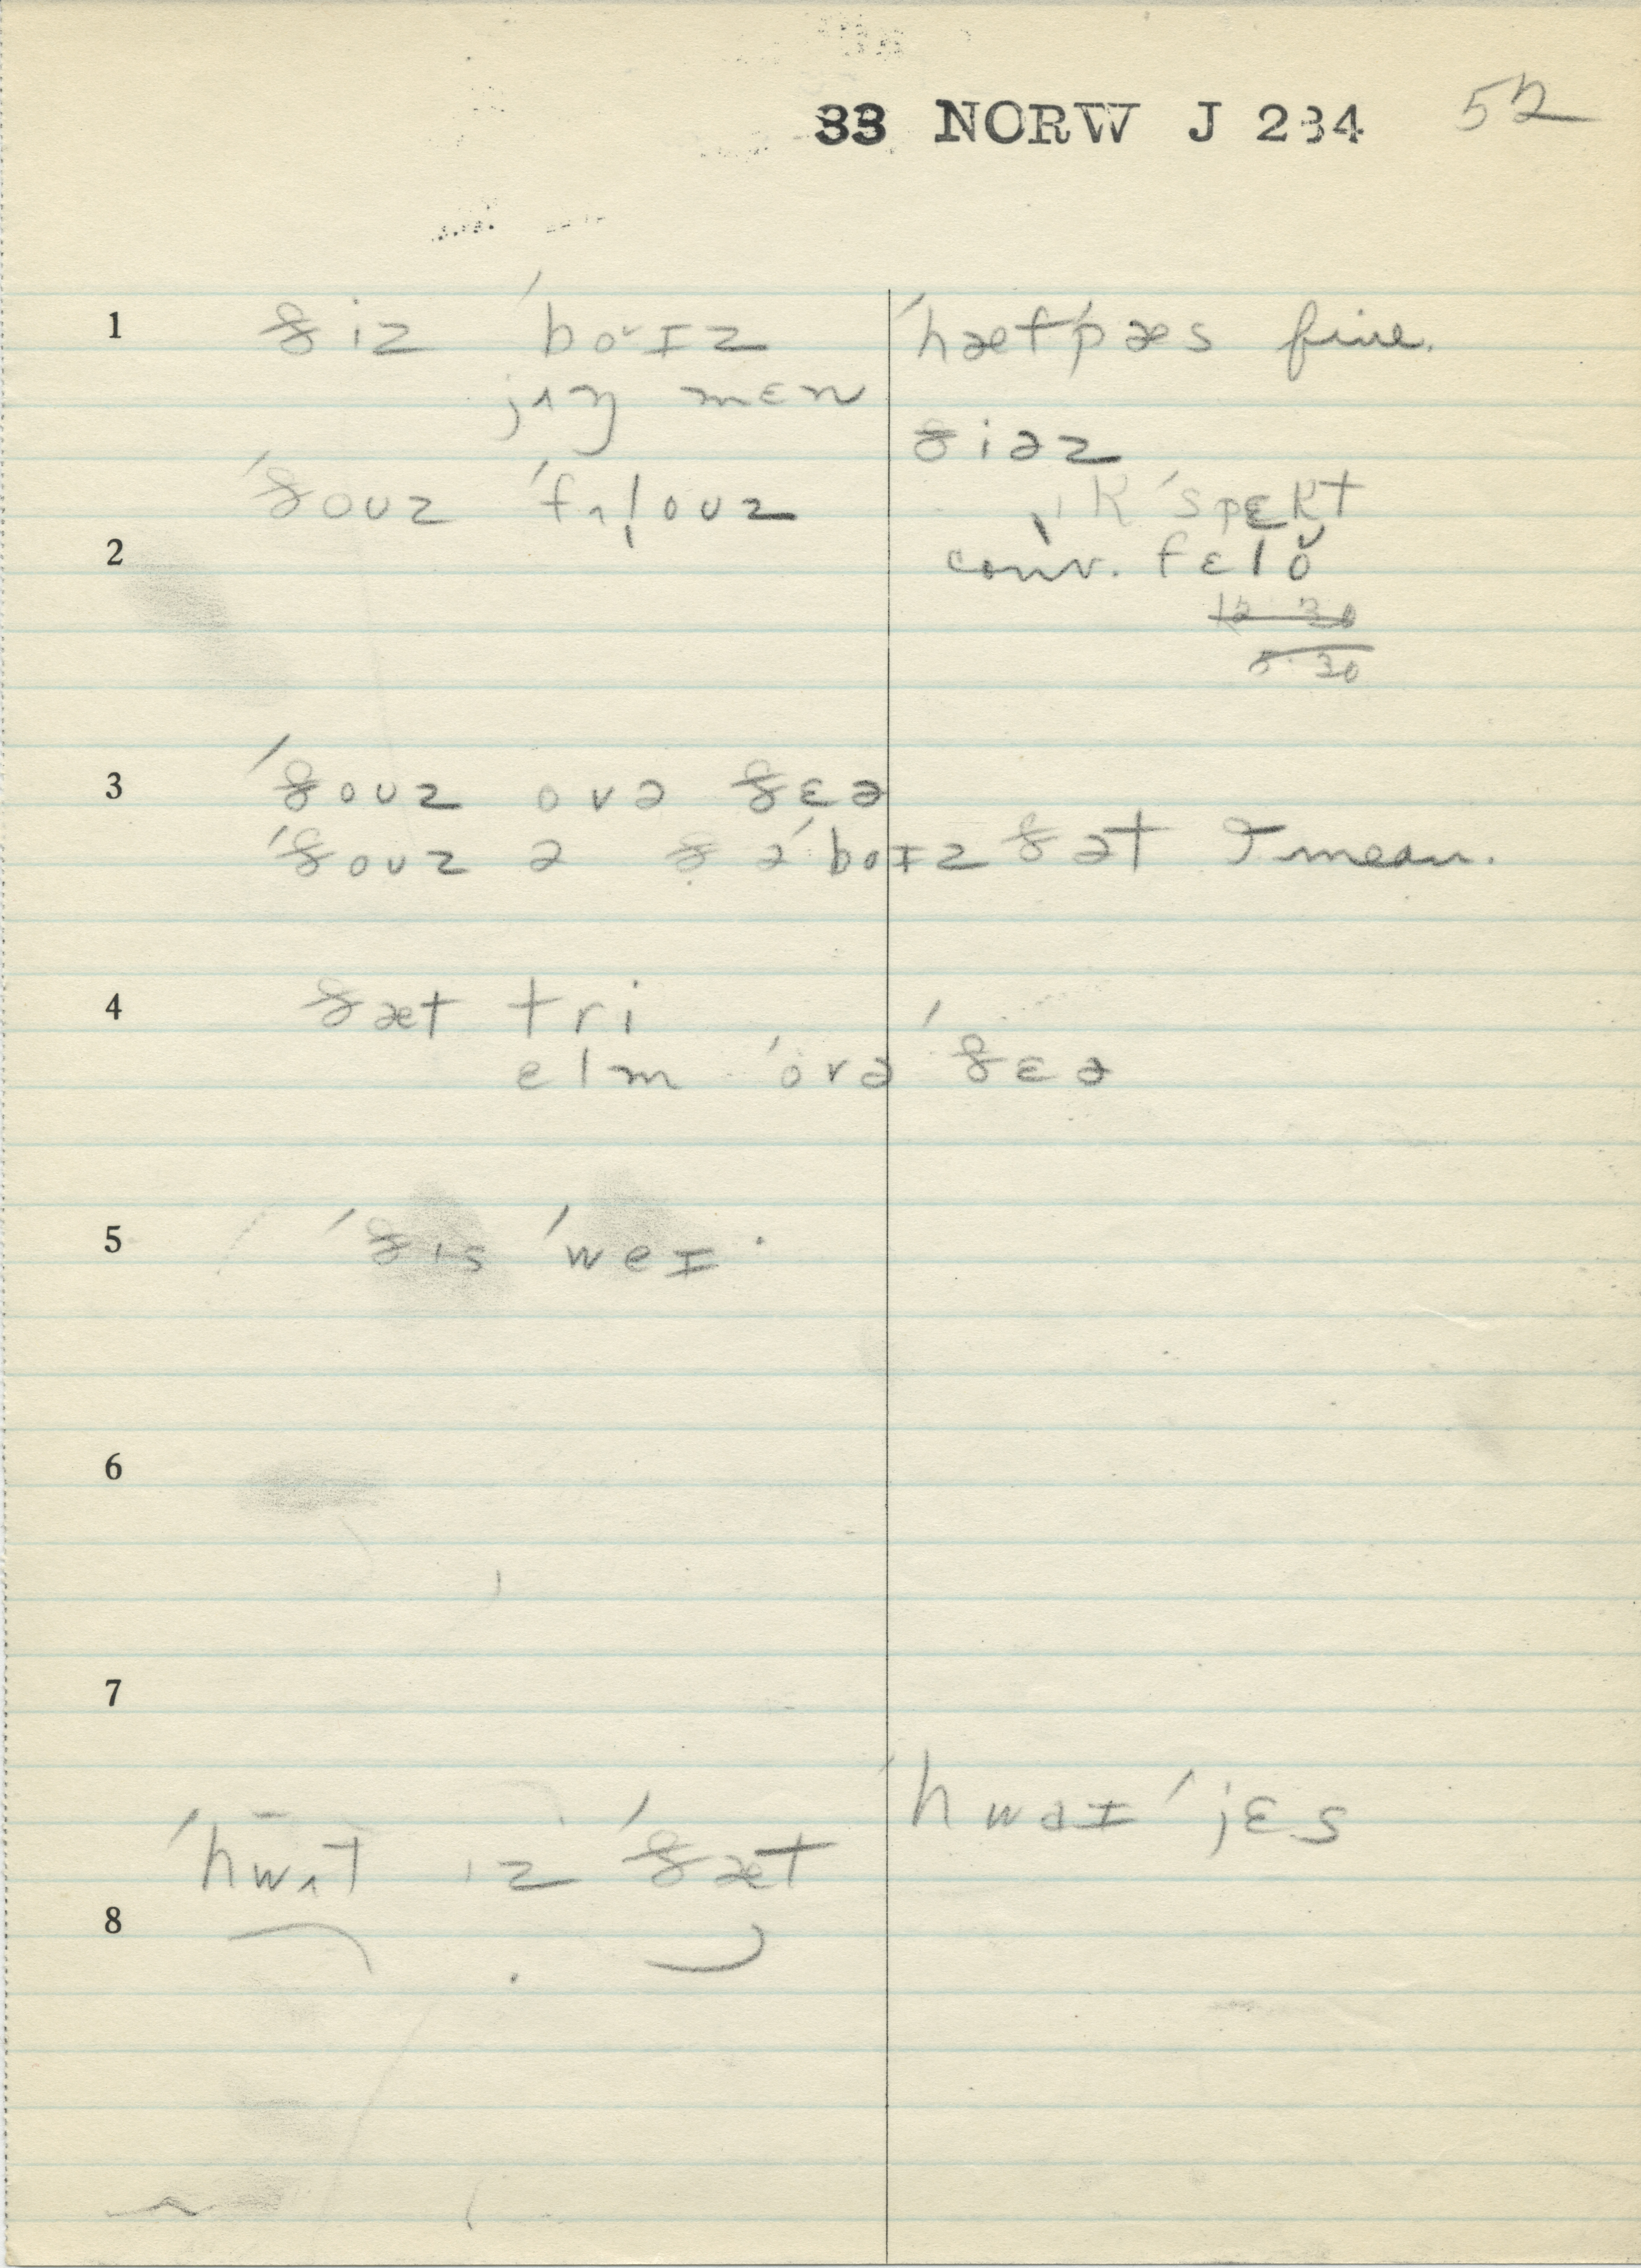 33 NORW J 234 52
1 ðiz ˈboˇɪz ˈhætˈpæs fine.
jʌŋ mɛn
ðiəz
ˈðouz ˈfʌl̩ouz ɪkˈspɛkt
2 conv. fɛlŏ
12 30
5 30
3 ˈðouz ovə ðɛə
ˈðouz ə ð̣əˈboɪz ðət I mean.
4 ðæt tri
elm ˈovə ˈðɛə
5 ˈðɪs ˈweɪ
6
7
ˈhwaɪ ˈjɛs
ˈhwʌt ɪz ˈðæt
8